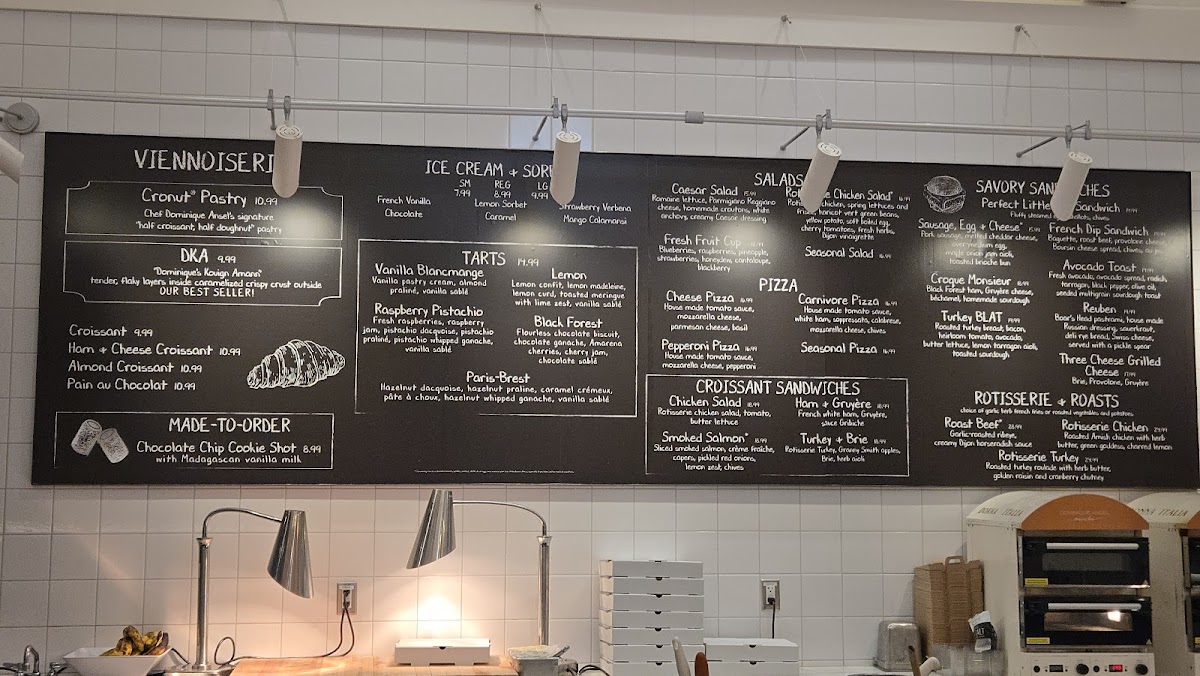 VIENNOISERI
Cronut® Pastry 10.99
Chef Dominique Ansel's signature
"half croissant, half doughnut" pastry
DKA 9.99
"Dominique's Kouign Amann"
tender, flaky layers inside caramelized crispy crust outside
OUR BEST SELLER!
Croissant 9.99
Ham & Cheese Croissant 10.99
Almond Croissant 10.99
Pain au Chocolat 10.99
MADE-TO-ORDER
Chocolate Chip Cookie Shot 8.99
with Madagascan vanilla milk
ICE CREAM & SOR
SM REG LG
7.99 8.99 9.99
French Vanilla
Lemon Sorbet
Strawberry Verbena
Chocolate
Caramel
Mango Calamansi
TARTS 14.99
Vanilla Blancmange
Vanilla pastry cream, almond
praliné, vanilla sablé
Raspberry Pistachio
Fresh raspberries, raspberry
jam, pistachio dacquoise, pistachio
praliné, pistachio whipped ganache,
vanilla sablé
Lemon
Lemon confit, lemon madeleine,
lemon curd, toasted meringue
with lime zest, vanilla sablé
Black Forest
Flourless chocolate biscuit,
chocolate ganache, Amarena
cherries, cherry jam,
chocolate sablé
Paris-Brest
Hazelnut dacquoise, hazelnut praline, caramel crémeux,
pâte à choux, hazelnut whipped ganache, vanilla sablé
SALADS
Caesar Salad
Romaine lettuce, Parmigiano Reggiano
cheese, homemade croutons, white
anchovy, creamy Caesar dressing
Fresh Fruit Cup
Blueberries, raspberries, pineapple,
strawberries, honeydew, cantaloupe,
blackberry
Chicken Salad*
chicken, spring lettuces and
frisée, haricot vert green beans,
yellow potato, soft boiled egg,
cherry tomatoes, fresh herbs,
Dijon vinaigrette
Seasonal Salad
PIZZA
Cheese Pizza
House made tomato sauce,
mozzarella cheese,
parmesan cheese, basil
Pepperoni Pizza
House made tomato sauce,
mozzarella cheese, pepperoni
Carnivore Pizza
House made tomato sauce,
white ham, sopressata, calabrese,
mozzarella cheese, chives
Seasonal Pizza
CROISSANT SANDWICHES
Chicken Salad
Rotisserie chicken salad, tomato,
butter lettuce
Smoked Salmon*
Sliced smoked salmon, crème fraîche,
capers, pickled red onions,
lemon zest, chives
Ham & Gruyère
French white ham, Gruyère,
sauce Gribiche
Turkey & Brie
Rotisserie Turkey, Granny Smith apples,
Brie, herb aioli
SAVORY SANDWICHES
Perfect Little Sandwich
Fluffy steamed chives
Sausage, Egg & Cheese*
Pork sausage, melted cheddar cheese,
over medium egg,
maple onion jam aioli,
toasted brioche bun
Croque Monsieur
Black Forest ham, Gruyère cheese,
béchamel, homemade sourdough
Turkey BLAT
Roasted turkey breast, bacon,
heirloom tomato, avocado,
butter lettuce, lemon tarragon aioli,
toasted sourdough
French Dip Sandwich
Baguette, roast beef, provolone cheese,
Boursin cheese spread, chives, au jus
Avocado Toast
Fresh avocado, avocado spread, radish,
tarragon, black pepper, olive oil,
seeded multigrain sourdough toast
Reuben
Boar's Head pastrami, house made
Russian dressing, sauerkraut,
deli rye bread, Swiss cheese,
served with a pickle spear
Three Cheese Grilled
Cheese
Brie, Provolone, Gruyère
ROTISSERIE & ROASTS
choice of garlic herb french fries or roasted vegetables and potatoes
Roast Beef*
Garlic-roasted ribeye,
creamy Dijon horseradish sauce
Rotisserie Chicken
Roasted Amish chicken with herb
butter, green goddess, charred lemon
Rotisserie Turkey
Roasted turkey roulade with herb butter,
golden raisin and cranberry chutney